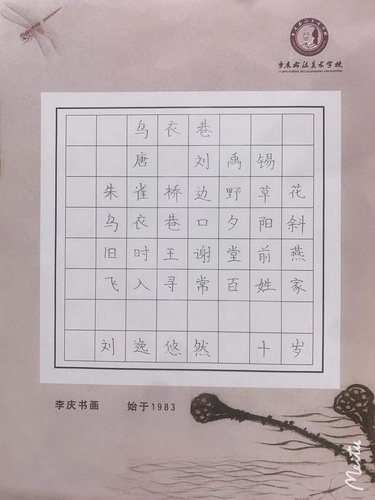 李庆书法美术学校
乌衣巷
唐 刘禹锡
朱雀桥边野草花
乌衣巷口夕阳斜
旧时王谢堂前燕
飞入寻常百姓家
刘逸悠然 十岁
李庆书画 始于1983
Meitu